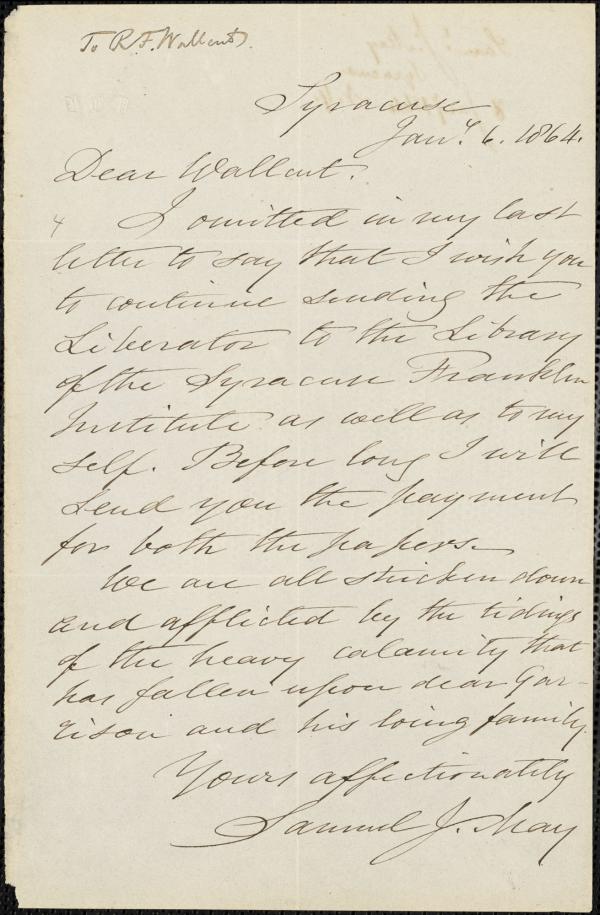 To R.F. Wallcut.
Syracuse
Jany. 6. 1864.
Dear Wallcut.
4 I omitted in my last
letter to say that I wish you
to continue sending the
Liberator to the Library
of the Syracuse Franklin
Institute as well as to my
self. Before long I will
send you the payment
for both the papers.
We are all stricken down
and afflicted by the tidings
of the heavy calamity that
has fallen upon dear Gar-
rison and his loving family.
Yours affectionately
Samuel J. May